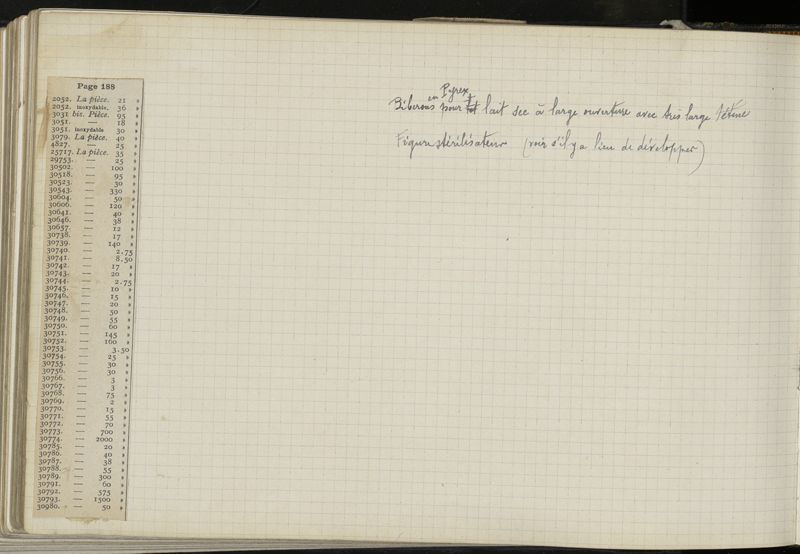 Page 188
2052. La pièce. 21 »
2052. inoxydable. 36 »
3031 bis. Pièce. 95 »
3051. — 18 »
3051. inoxydable 30 »
3079. La pièce. 40 »
4827. — 25 »
25717. La pièce. 35 »
29753. — 25 »
30502. — 100 »
30518. — 95 »
30523. — 30 »
30543. — 330 »
30604. — 50 »
30606. — 120 »
30641. — 40 »
30646. — 38 »
30657. — 12 »
30738. — 17 »
30739. — 140 »
30740. — 2.75
30741. — 8.50
30742. — 17 »
30743. — 20 »
30744. — 2.75
30745. — 10 »
30746. — 15 »
30747. — 20 »
30748. — 50 »
30749. — 55 »
30750. — 60 »
30751. — 145 »
30752. — 160 »
30753. — 3.50
30754. — 25 »
30755. — 30 »
30756. — 30 »
30766. — 3 »
30767. — 3 »
30768. — 75 »
30769. — 2 »
30770. — 15 »
30771. — 55 »
30772. — 70 »
30773. — 700 »
30774. — 2000 »
30785. — 20 »
30786. — 40 »
30787. — 38 »
30788. — 55 »
30789. — 300 »
30791. — 60 »
30792. — 575 »
30793. — 1500 »
30980. — 50 »
en Pyrex
Biberons pour lait sec à large ouverture avec très large tétine
Figure stérilisateur (voir s'il y a lieu de développer)